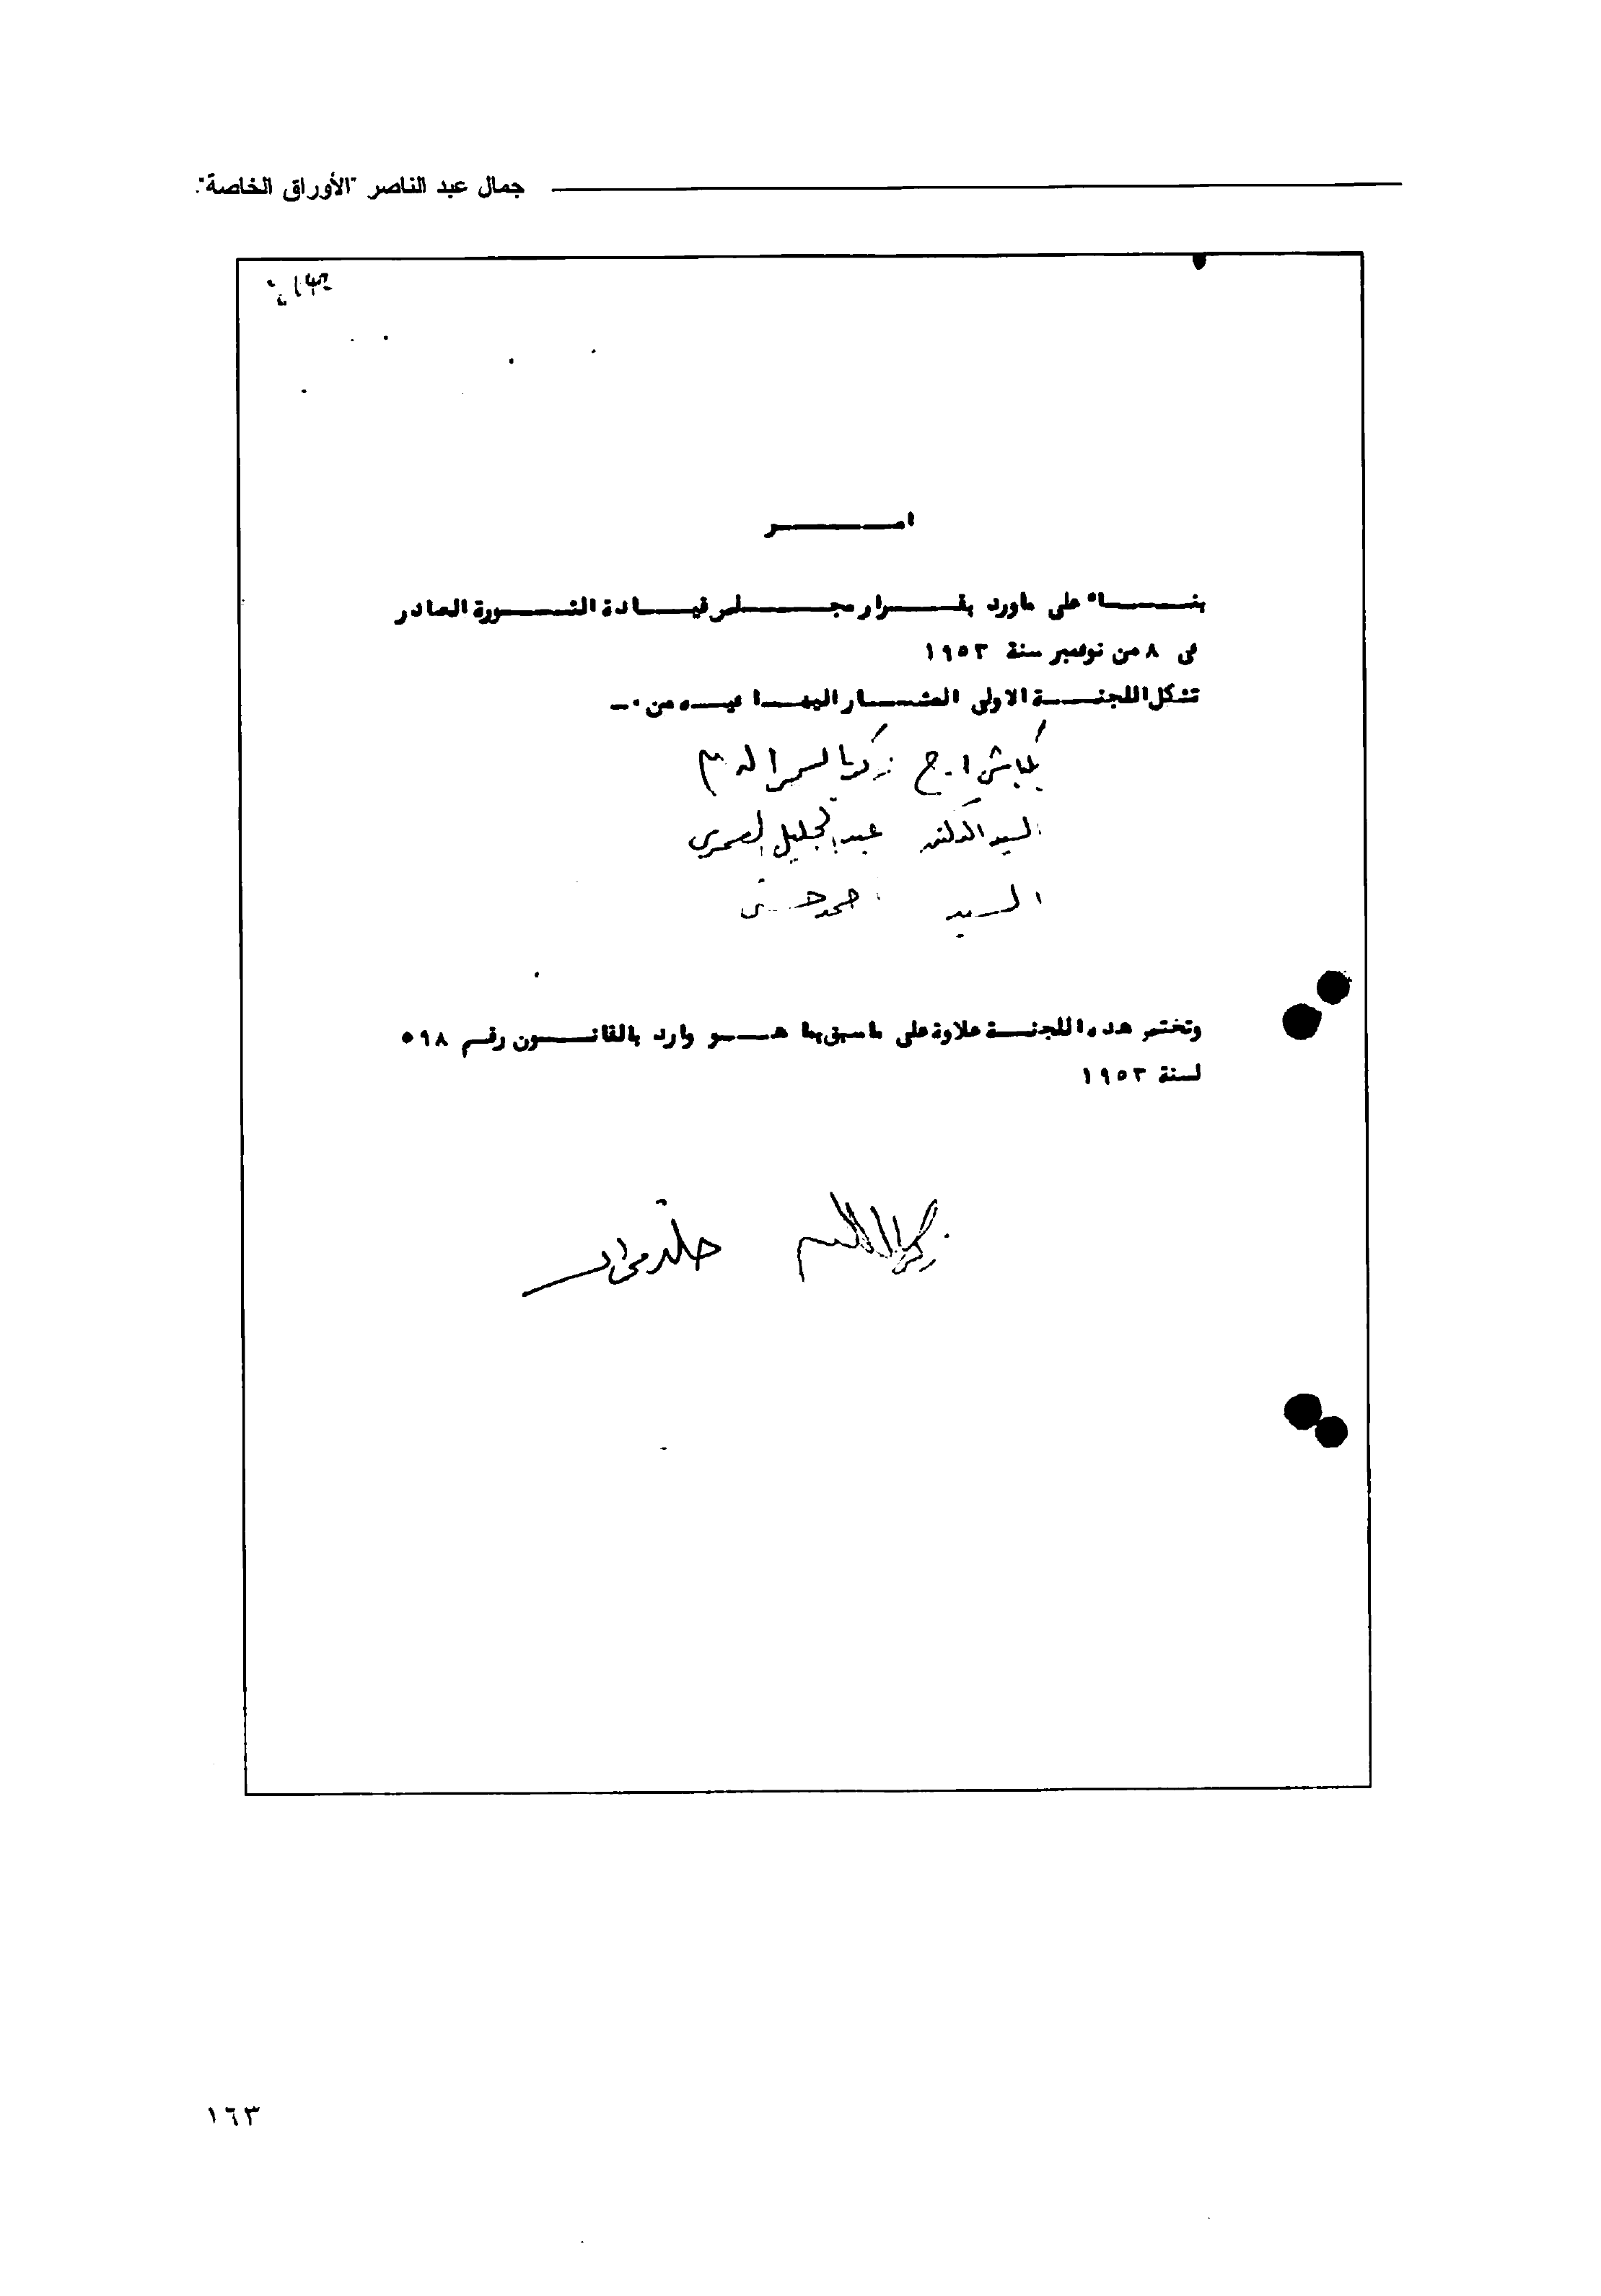 جمال عبد الناصر "الأوراق الخاصة".
امـــر
بنـــاء على ماورد بقـــرار مجـــلس قيـــادة الثـــورة الصادر
فى ٨ من نوفمبر سنة ١٩٥٣
تشكل اللجنـــة الاولى المشـــار اليهـــا فيـــه من :ـ
بكباشى ا.ح زكريا محى الدين
السيد الدكتور عبد الجليل العمرى
السيد احمد حسنى
وتختص هذه اللجنـــة علاوة على ماسبق بما هـــو وارد بالقانـــون رقم ٥٩٨
لسنة ١٩٥٣
١٦٣